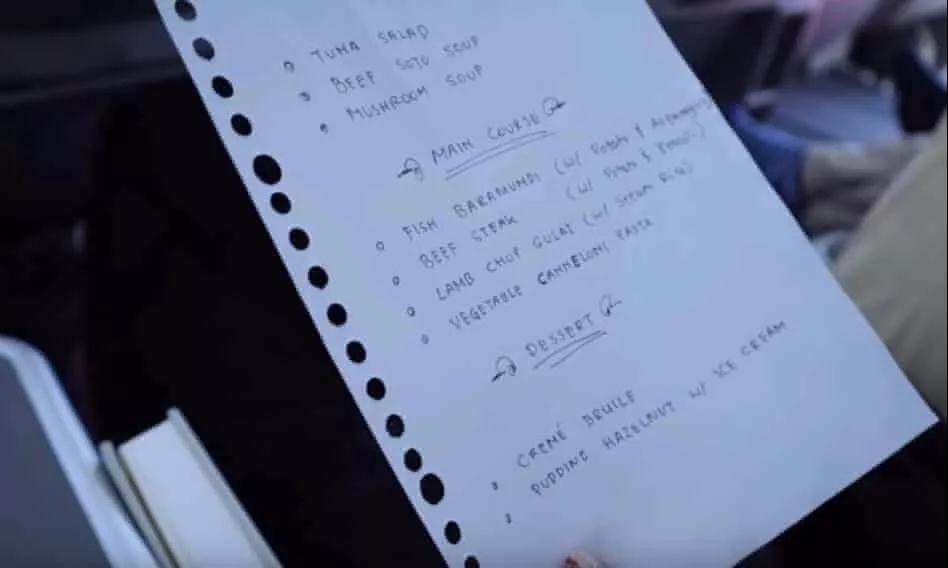 TUNA SALAD
BEEF SOTO SOUP
MUSHROOM SOUP
MAIN COURSE
FISH BARAMUNDI (w/ Potato & Asparagus)
BEEF STEAK (w/ Potato &
LAMB CHOP GULAI (w/ Steam Rice)
VEGETABLE CANNELONI PASTA
DESSERT
CREMÉ BRULE
PUDDING HAZELNUT w/ ICE CREAM